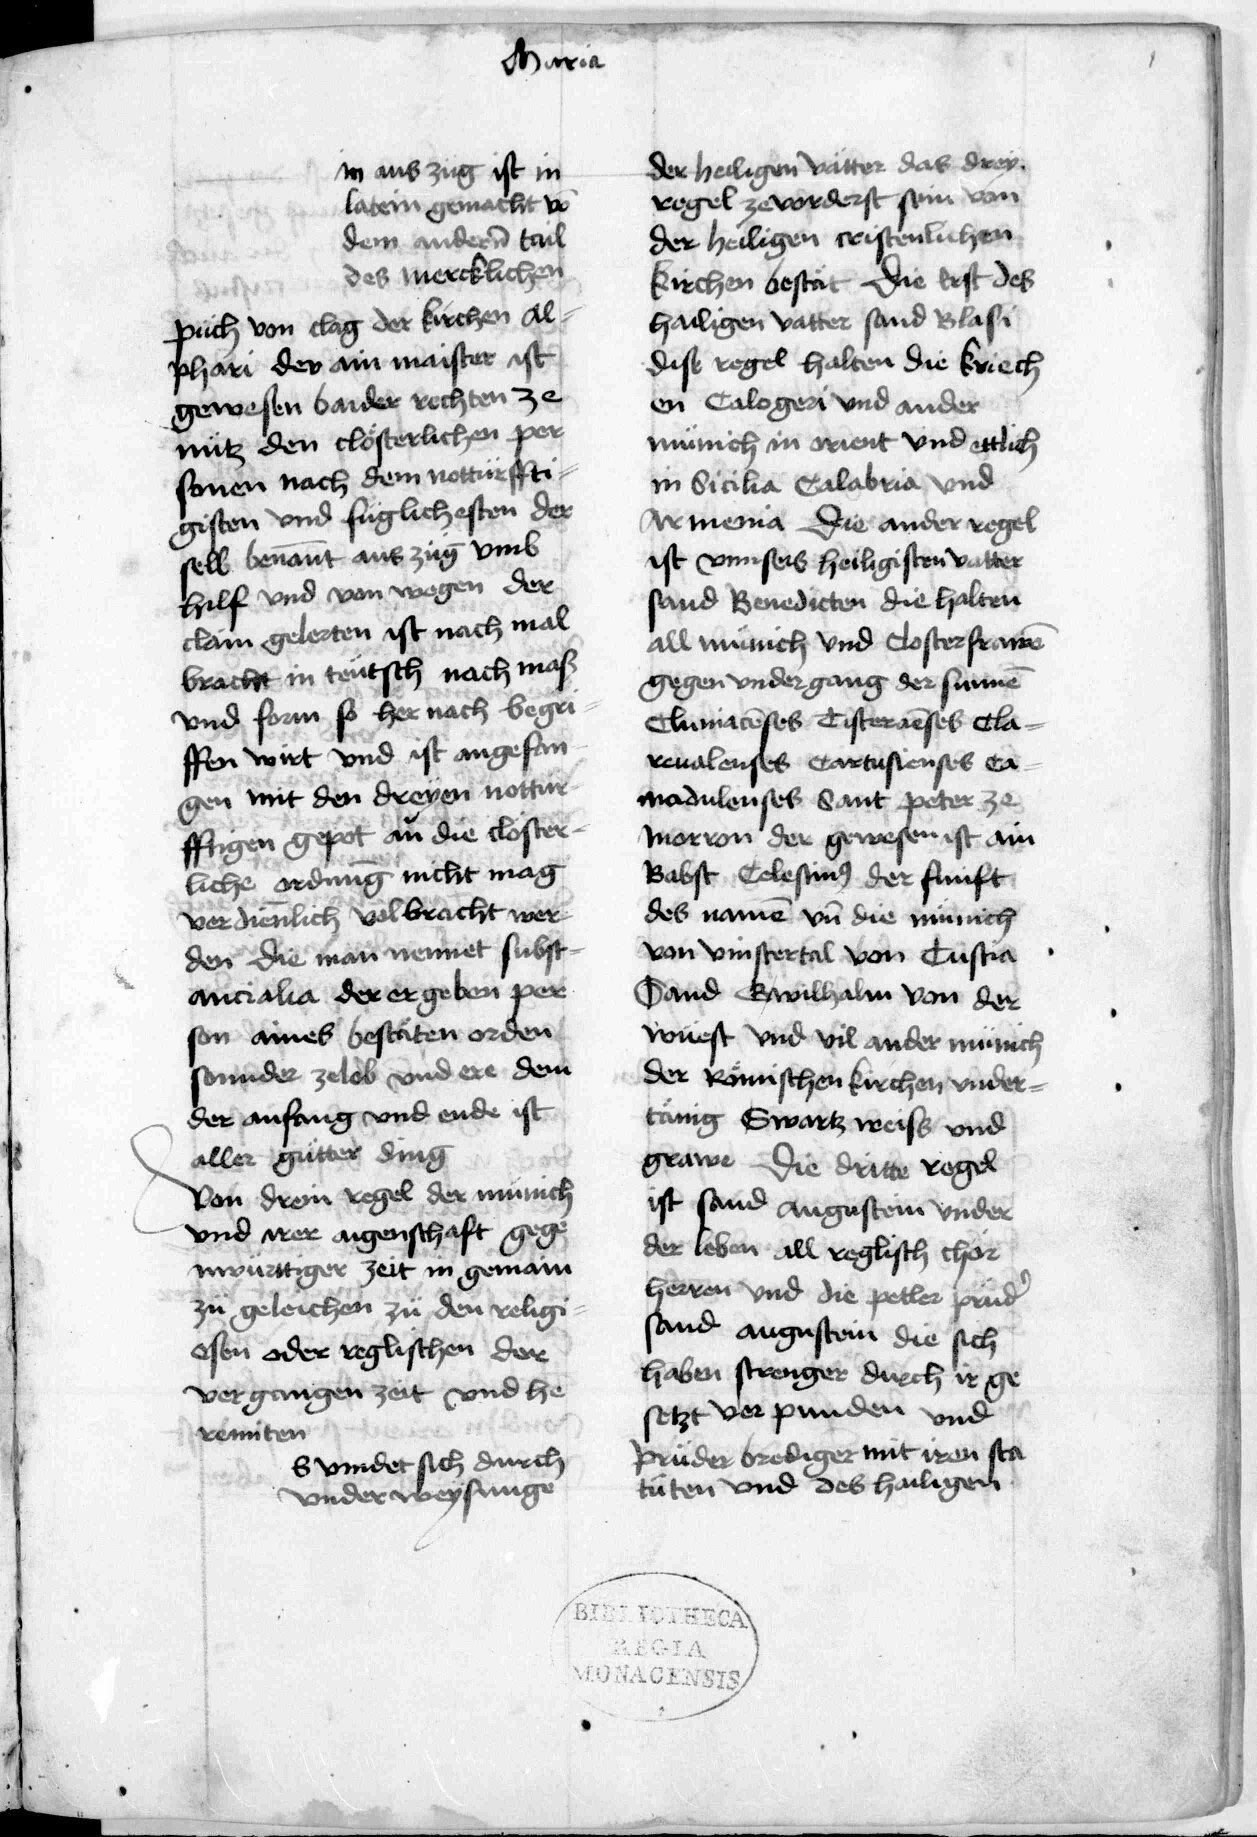 Maria
1
in aus zug ist in
latein gemacht vō
dem andern̄ tail
des mercklichen
puͤch von clag der kirchen Al=
phari der ain maister ist
gewesen baider rechten ze
nütz den clösterlichen per
sonen nach dem nottürffti=
gisten vnd füglichesten der
selb benānt aus züg vmb
hilf vnd von wegen der
clain gelerten ist nach mal
bracht in teütsch nach mass
vnd form so her nach begri=
ffen wirt vnd ist angefan=
gen mit den dreyen nottur=
fftigen gepot an̄ die closter=
liche ordnūg nicht mag
verdiēnlich volbracht wer=
den Die man nennet subst=
ancialia der ergeben per
son aines bestäten orden
sounder zelob vnd ere dem
der anfang vnd ende ist
aller gütter ding
Von drein regel der münich
vnd irer aigenschaft gege
nwürttiger zeit in gemain
zü geleichen zü den religi=
osen oder reglischen der
vergangen zeit vnd he
remiten
S vindet sich durch
vnderweysunge
der heiligen vätter das drey
regel zevorderst sein von
der heiligen cristenlichen
kirchen bestät Die erst des
hailigen vatter sand Blasi
dise regel halten die kriech
en Calogeri vnd ander
münich in orient vnd ettlich
in Sicilia Calabria vnd
Armenia Die ander regel
ist vnnsers heiligisten vatter
sand Benedicten die halten
all münich vnd Closterfrawē
gegen vndergang der sunnē
Cluniacēses Cistercīēses Cla=
reualenses Cartusienses Ca=
madulenses Sant peter ze
morron der gewesen ist ain
Babst Celestinꝰ der funft
des namē vn̄ die münich
von vinstertal von Tuscia
Sand Gwilhalm von der
wüest vnd vil ander münich
der Römischen kirchen vnder=
tänig Swartz weiss vnd
grawe Die dritte regel
ist sand augustein vnder
der leben all reglisch chor
herren vnd die petler prüdˀ
sand augustein die sich
haben strenger durch ir ge
setzt ver punden vnd
prüder brediger mit iren sta
tüten vnd des hailigen
BIBLIOTHECA
REGIA
MONACENSIS